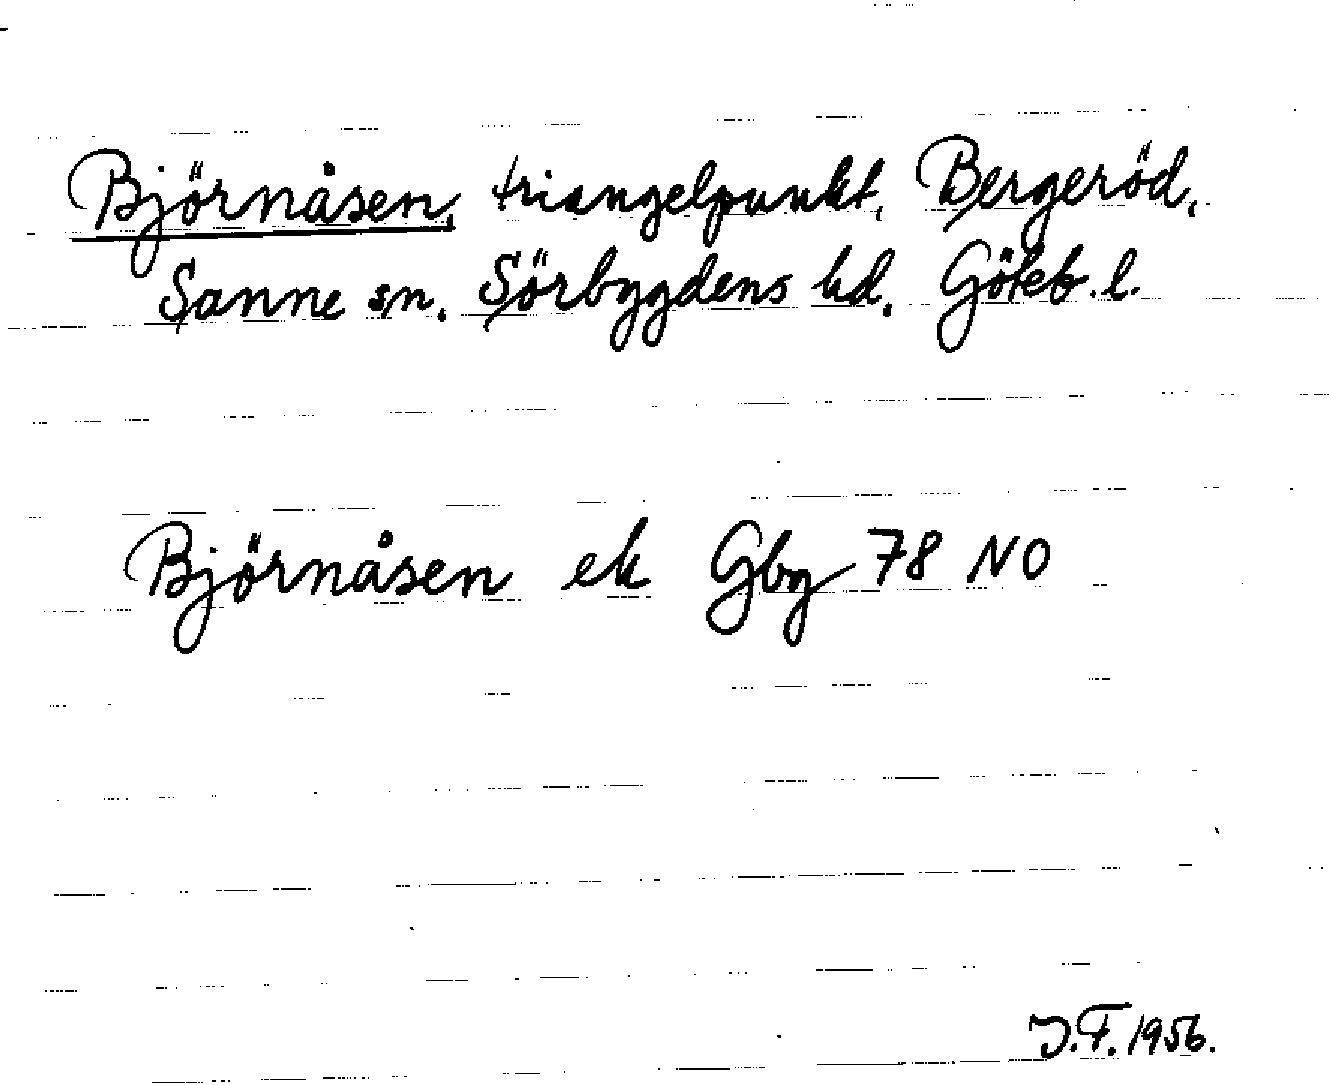 Björnåsen, triangelpunkt, Bergeröd,
Sanne sn. Sörbygdens hd. Göteb. l.
Björnåsen ek Gbg 78 NO
J.F. 1956.